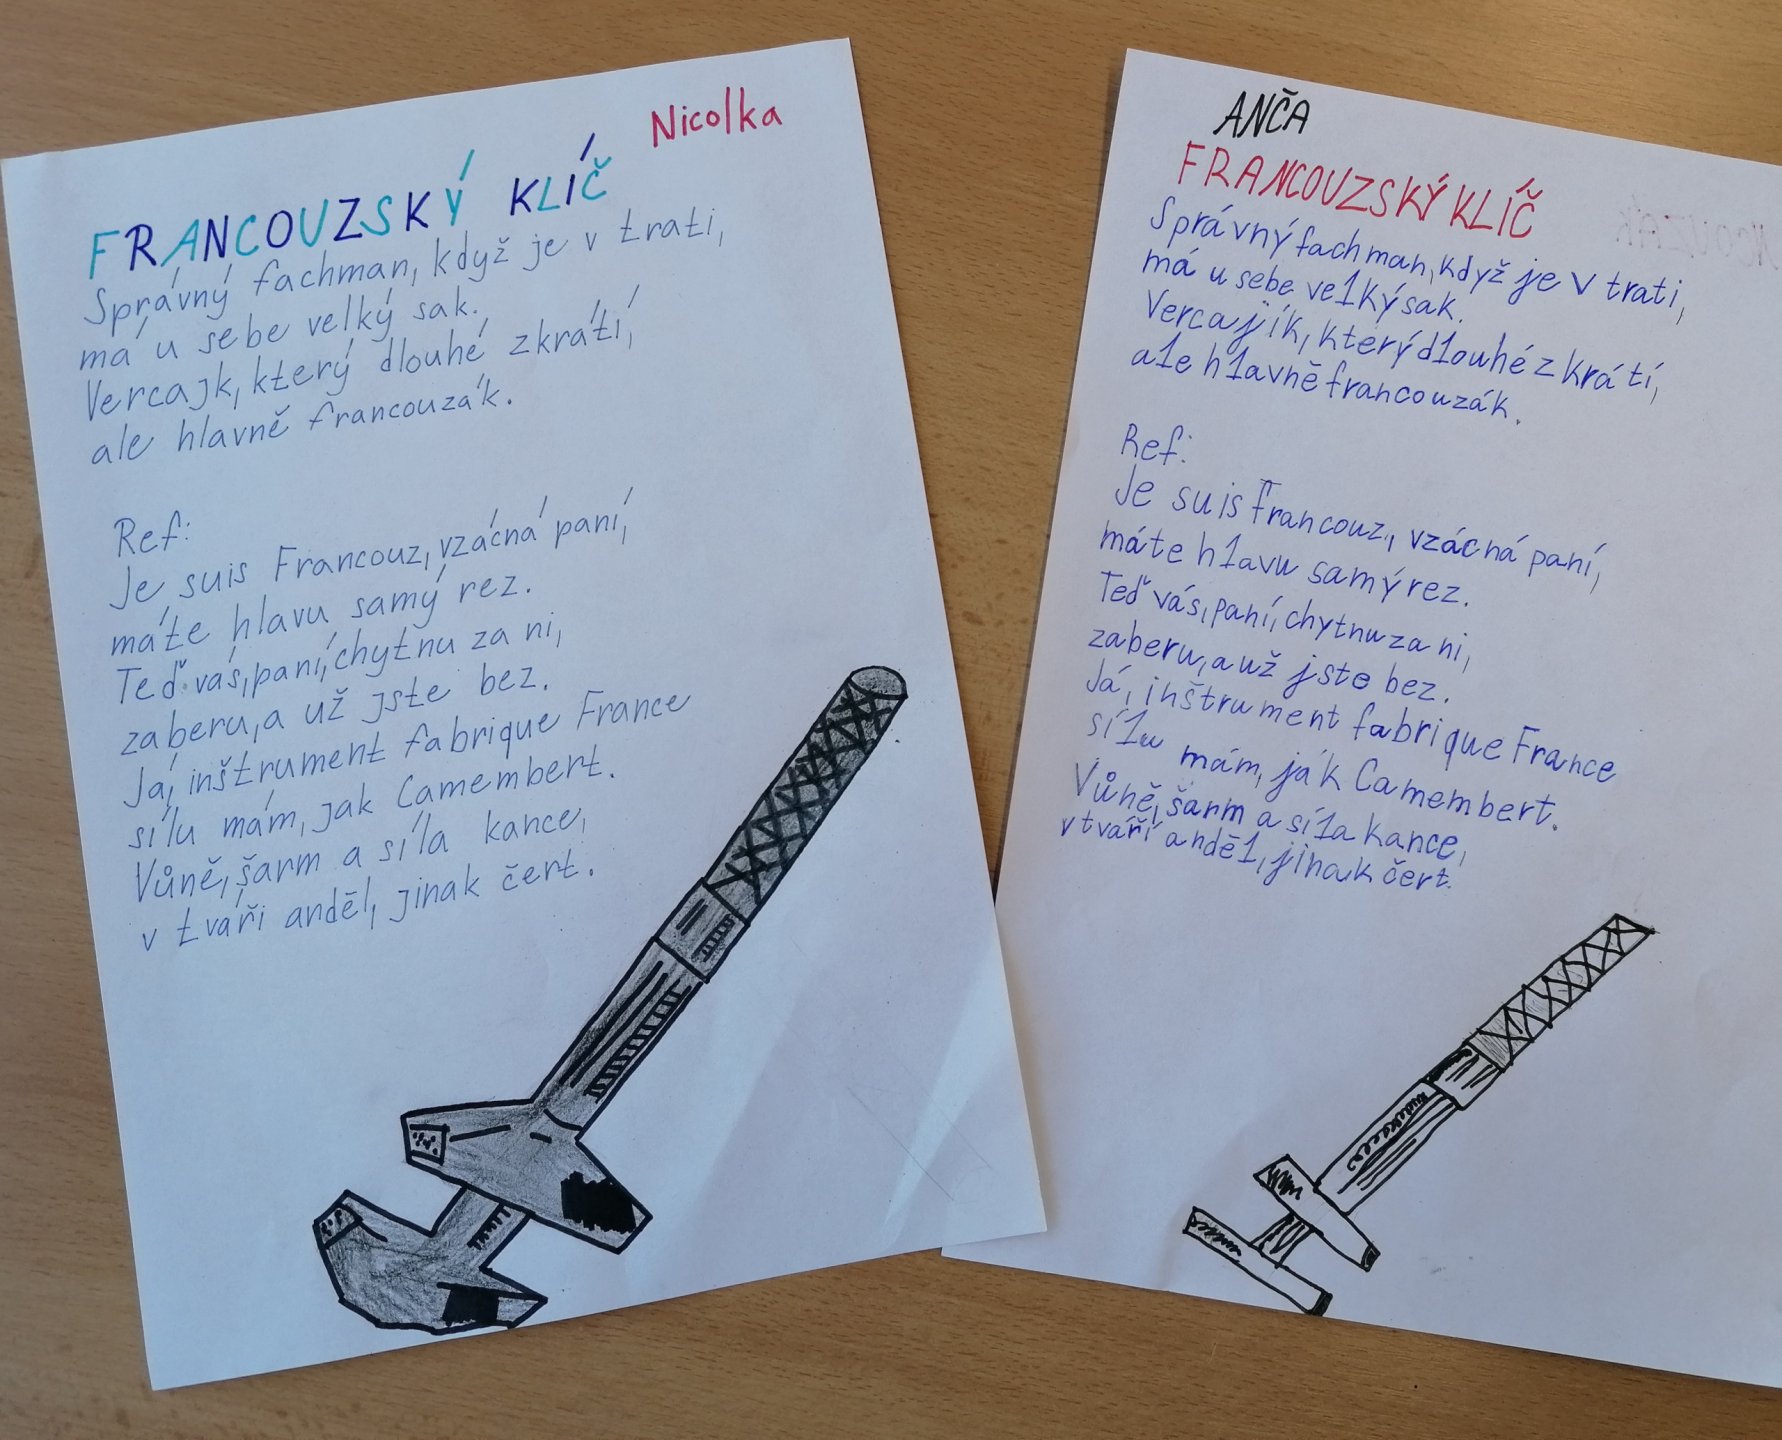 Nicolka
FRANCOUZSKÝ KLÍČ
Správný fachman, když je v trati,
má u sebe velký sak.
Vercajk, který dlouhé zkrátí,
ale hlavně francouzák.
Ref:
Je suis Francouz, vzácná paní,
máte hlavu samý rez.
Teď vás, paní, chytnu za ni,
zaberu, a už jste bez.
Já, inštrument fabrique France
sílu mám, jak Camembert.
Vůně, šarm a síla kance,
v tváři anděl, jinak čert.
ANČA
FRANCOUZSKÝ KLÍČ
Správný fachman, když je v trati,
má u sebe velký sak.
Vercajík, který dlouhé zkrátí,
ale hlavně francouzák.
Ref:
Je suis Francouz, vzácná paní,
máte hlavu samý rez.
Teď vás, paní, chytnu za ni,
zaberu, a už jste bez.
Já, inštrument fabrique France
sílu mám, ják Camembert.
Vůně, šarm a síla kance,
v tváří anděl, jinak čert.